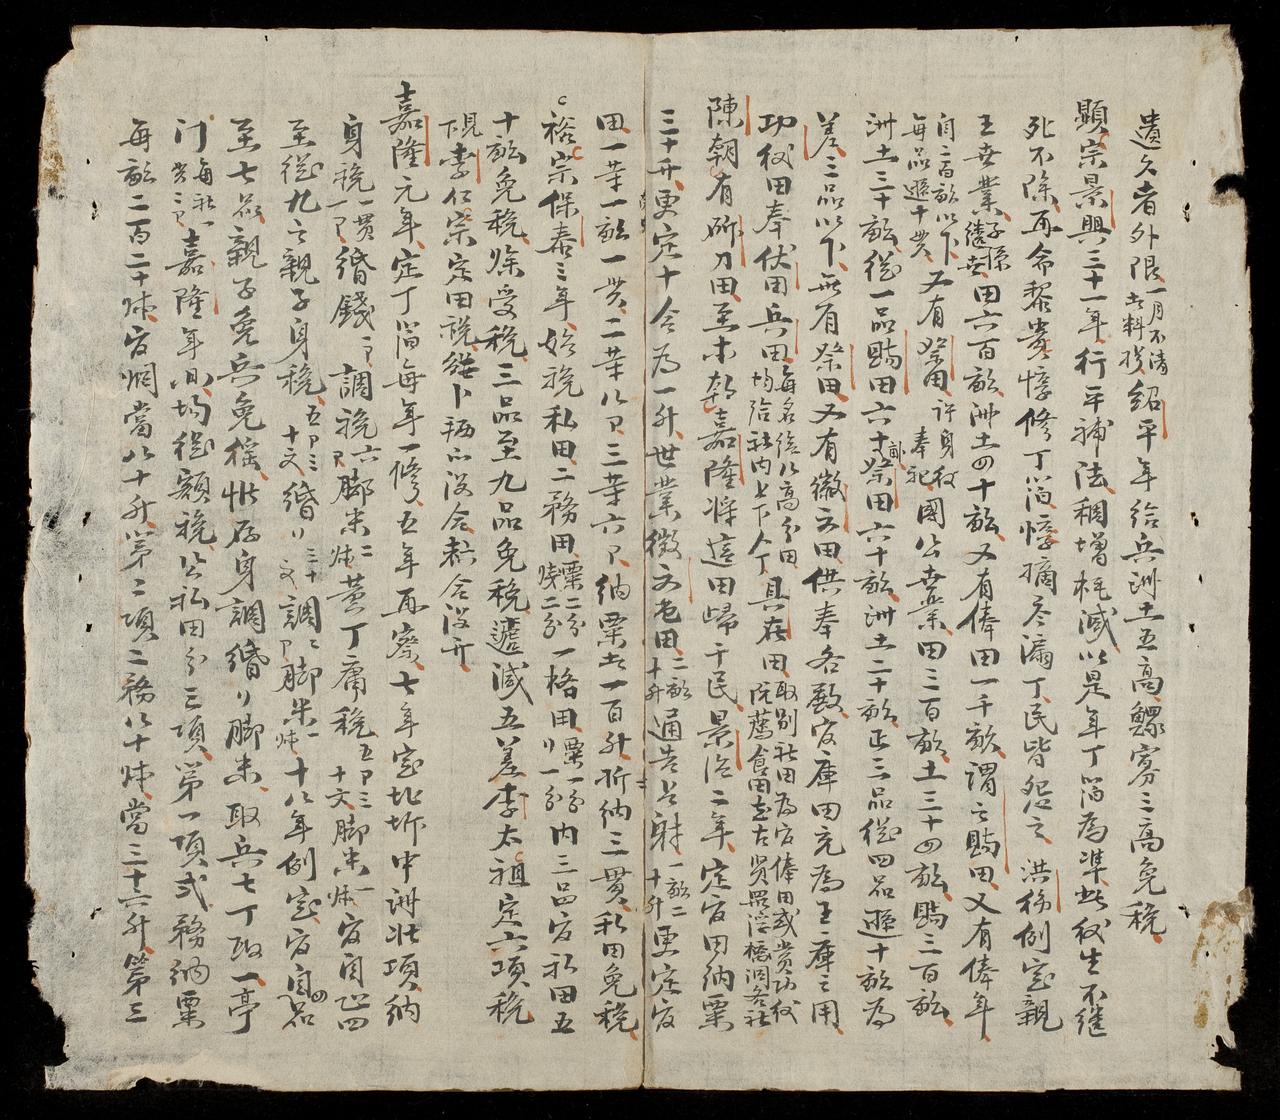 遺欠者外限一月不清出料撥紹平年給兵洲土五高鰥寡三高免稅
顯宗景興三十一年行平補法稠增耗減以是年丁簿為準然役生不繼
死不除再命黎貴惇修丁簿惇摘尽漏丁民皆怨之洪德例定親
王世業子孫繼世田六百畝洲土四十畝又有俸田一千畝謂之賜田又有俸年
自二百畝以下每品遞十貫又有祭田許身後奉祀國公世業田三百畝土三十四畝賜三百畝
洲土三十畝從一品賜田六十畝祭田六十畝洲土二十畝正三品從四品遞十畝為
差三品以下無有祭田又有徽文田供奉各殿官庫田充為王庫之用
功役田奉伏田兵田每名給八高分田均給社内上下人具在田取別社田為官俸田或賞功役
陳朝有斫刀田至本朝嘉隆將這田歸于民景治二年定官田納粟
三十升更定十合為一升世業徽文老田二畝十升通告芸射一畝二十升更定官
田一等一畝一貫二等八口三等六口納粟者一百升折納三貫私田免稅
裕宗保泰三年始稅私田二務田粟二分錢二分一格田〃粟一分〃一分内三品官私田五
十畝免稅除受稅三品至九品免稅遞減五差李太祖定六項稅
見下李仁宗定田稅
嘉隆元年定丁簿每年一修五年再察七年定北圻中洲壯項納
身稅一貫一口緡錢一口調稅六口脚米二鉢黃丁庸稅五口三十文脚米一鉢官自正四
至從九之親子身稅五口三十文緡〃三十文調〃口脚米一鉢十八年例定官自四品
至七品親子免兵免徭惟存身調緡〃脚米取兵七丁取一亭
門每社一貫二口嘉隆年間均從額稅公私田分三項第一項弍務納粟
每畝二百二十鉢官烱當八十升第二項二務八十鉢當三十六升第三